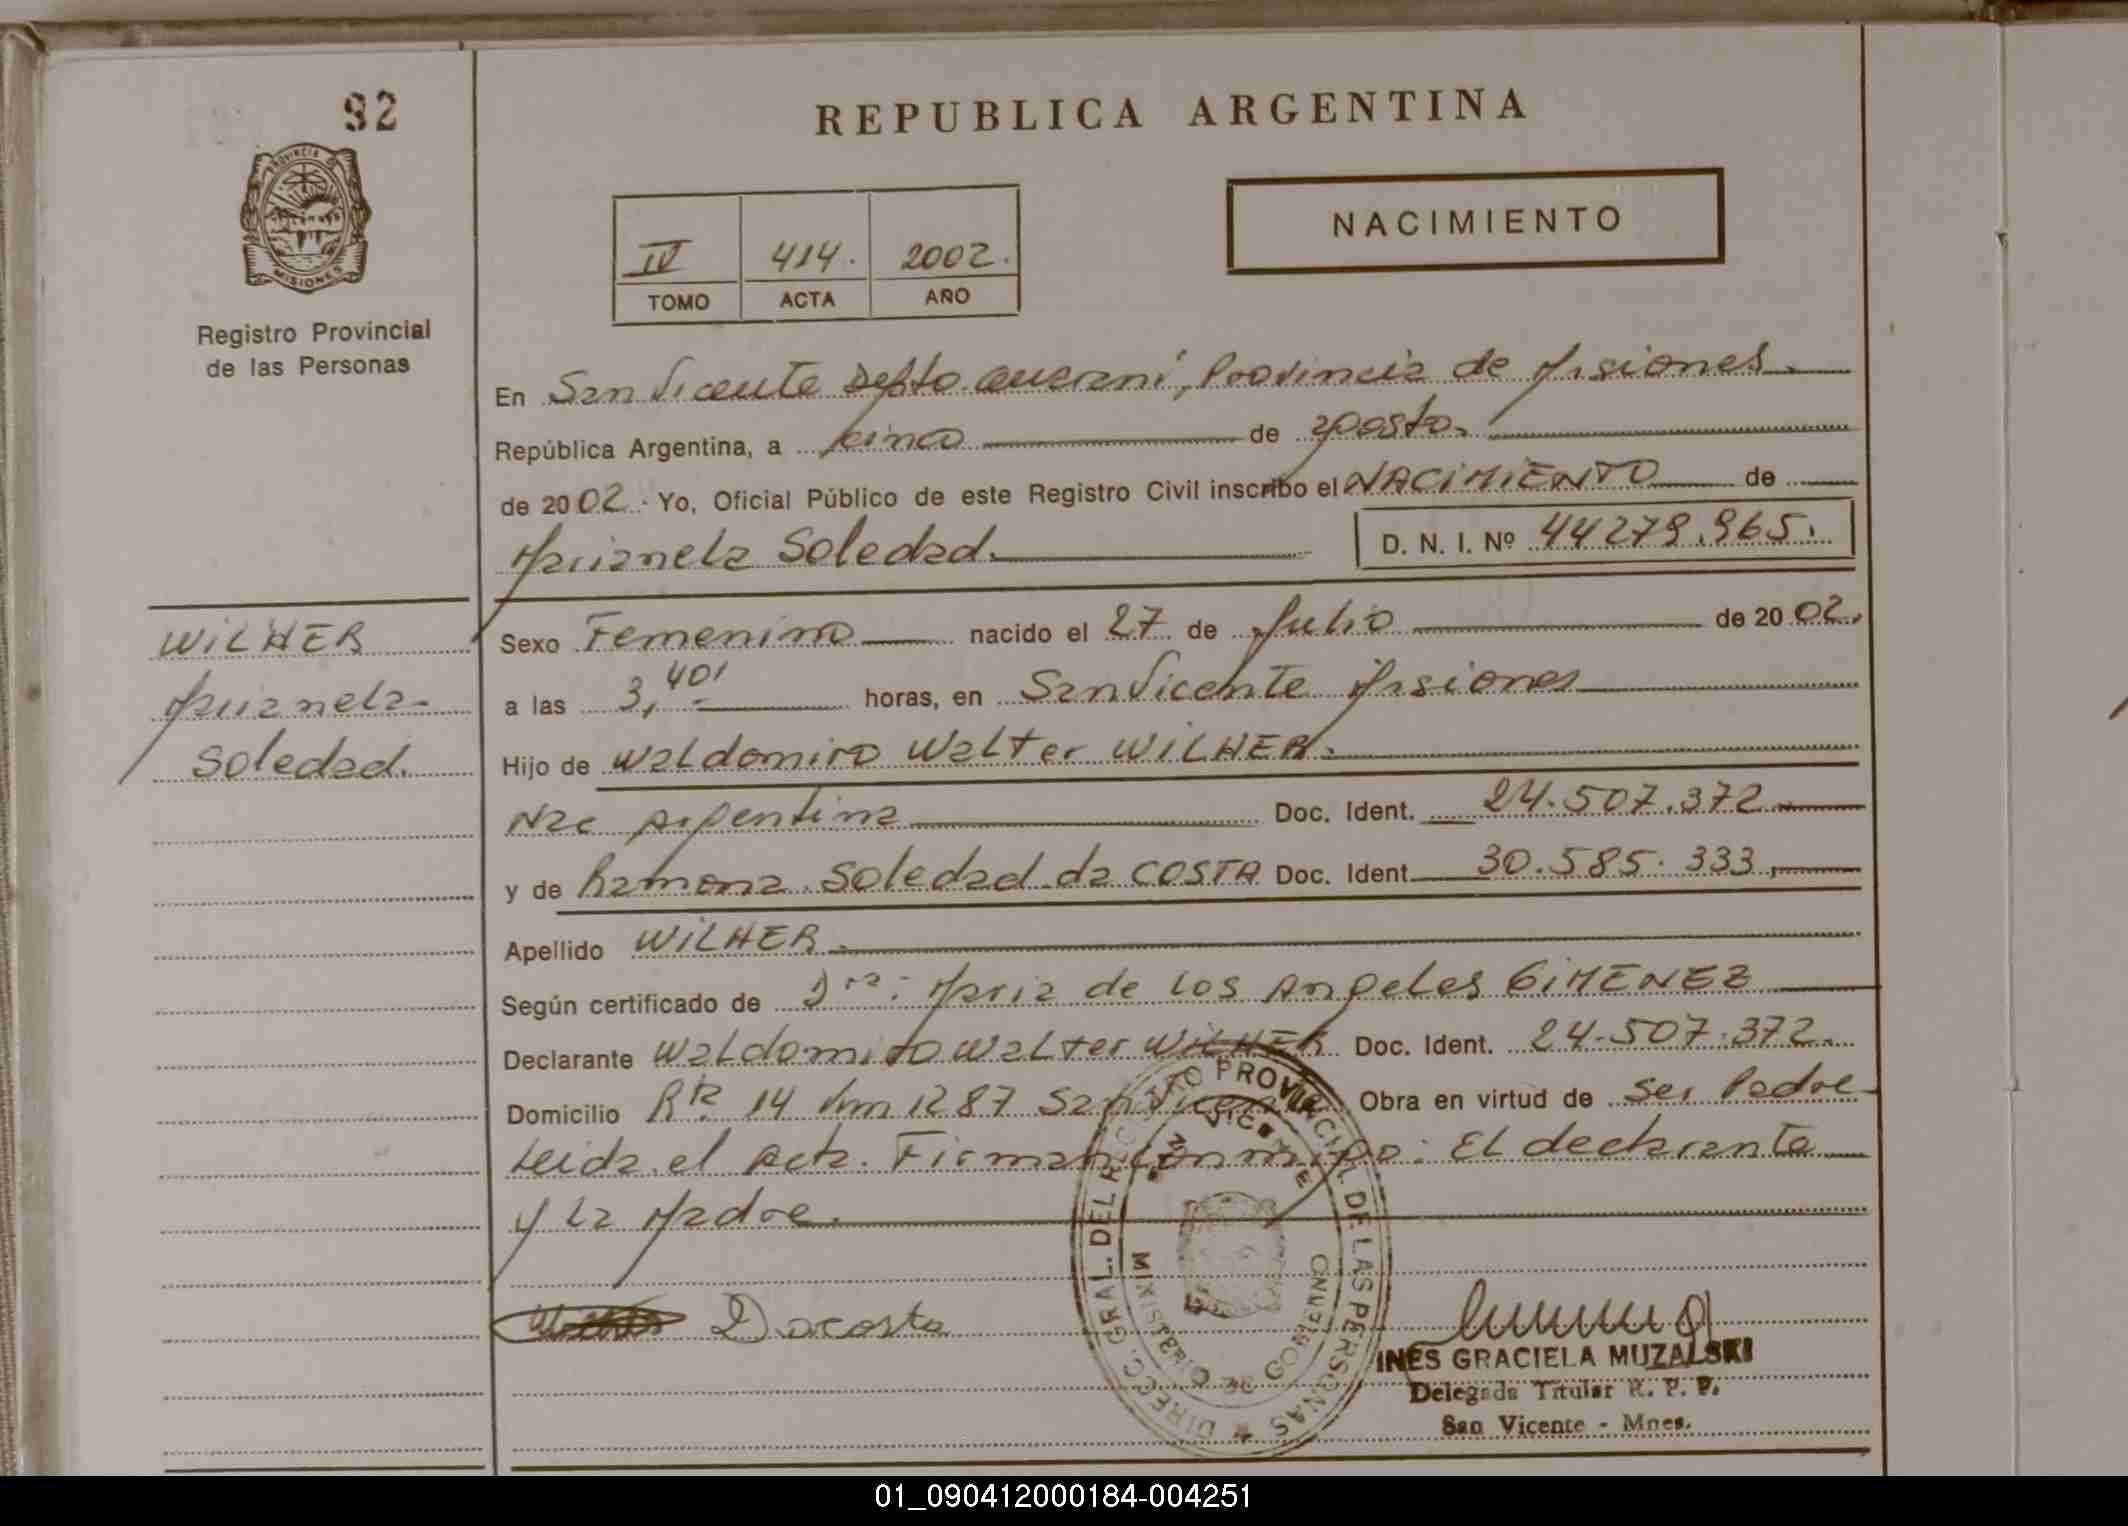 92
PROVINCIA DE
MISIONES
Registro Provincial
de las Personas
REPUBLICA ARGENTINA
NACIMIENTO
IV 414. 2002.
TOMO ACTA AÑO
En San Vicente Depto. Guaraní, Provincia de Misiones.
República Argentina, a cinco de agosto.
de 2002. Yo, Oficial Público de este Registro Civil inscribo el NACIMIENTO de
Marianela Soledad. D. N. I. Nº 44279.965.
WILHER
Marianela
Soledad.
Sexo Femenino nacido el 27 de Julio de 2002.
a las 3,40' horas, en San Vicente Misiones
Hijo de Waldomiro Walter WILHER.
Nac Argentina Doc. Ident. 24.507.372
y de Ramona Soledad da COSTA Doc. Ident. 30.585.333,
Apellido WILHER.
Según certificado de Dra: Maria de los Angeles GIMENEZ
Declarante Waldomiro Walter WILHER Doc. Ident. 24.507.372.
Domicilio 14 km 1287 San Vicente Obra en virtud de ser Padre
Leida el Acta. Firman conmigo: El declarante
y la Madre.
Dacosta
DIRECC. GRAL. DEL REGISTRO PROVINCIAL DE LAS PERSONAS
SAN VICENTE
MINISTERIO DE GOBIERNO
INES GRACIELA MUZALSKI
Delegada Titular R. P. P.
San Vicente - Mnes.
01_090412000184-004251